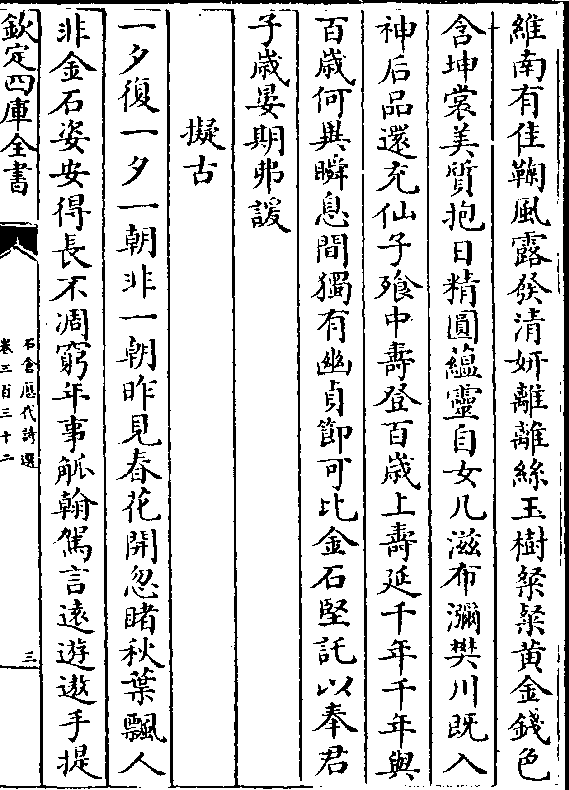 維南有佳鞠風露發清妍離離綠玉樹粲粲黄金錢色
含坤裳美質抱日精圓藴靈自女几滋布瀰樊川既入
神后品還充仙子飱中壽登百歳上壽延千年千年與
百歳何異瞬息間獨有幽貞節可比金石堅託以奉君
子歳晏期弗諼
擬古
一夕復一夕一朝非一朝昨見春花開忽睹秋葉飄人
非金石姿安得長不凋窮年事觚翰駕言遠遊遨手提
欽定四庫全書
石倉歴代詩選
卷三百三十二
三